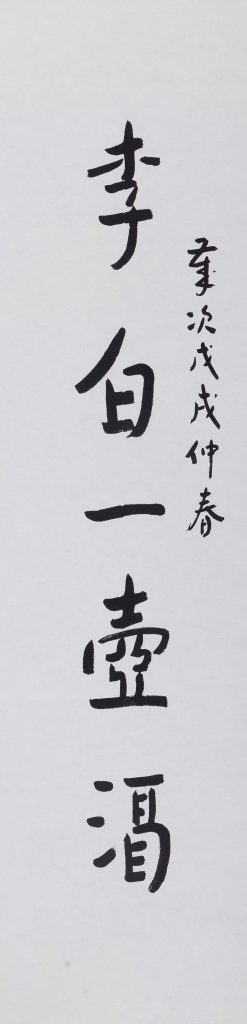 歲次戊戌仲春
李白一壺酒